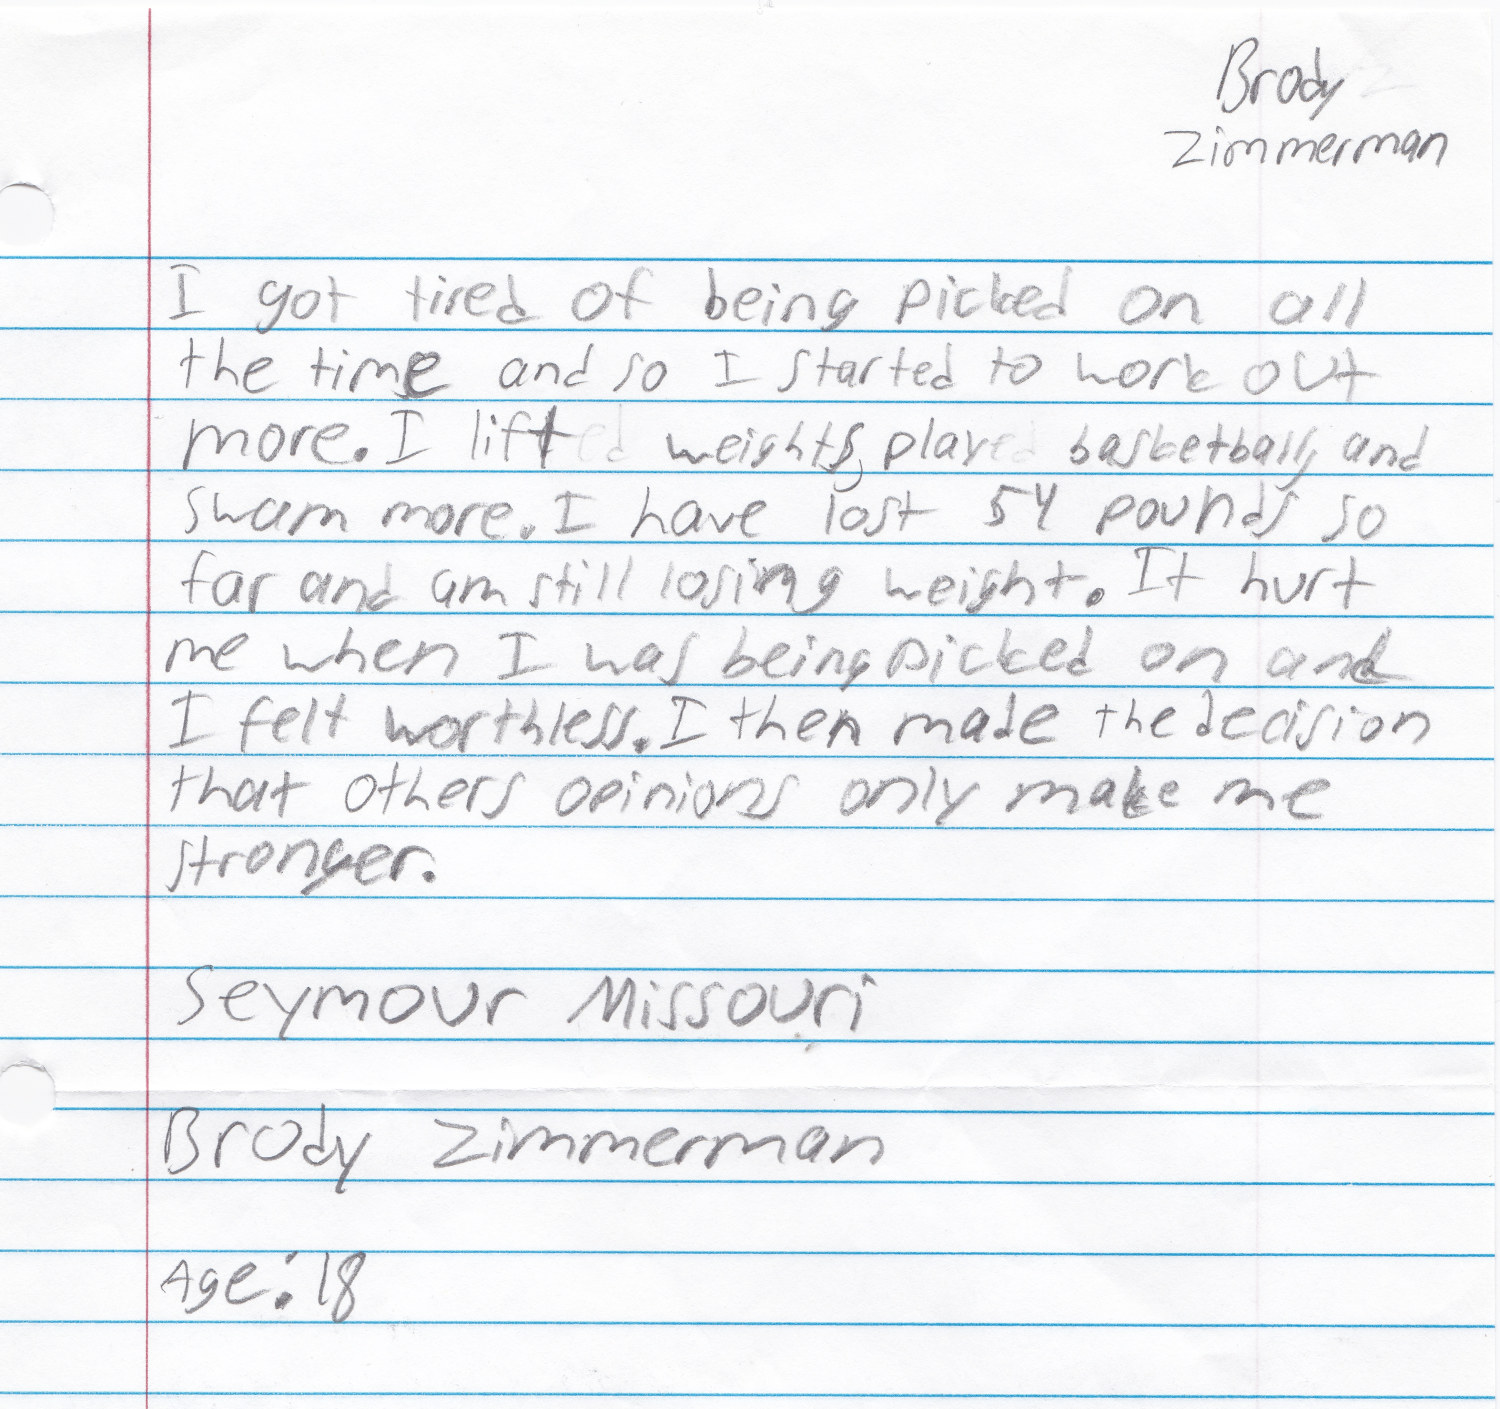 Brody
Zimmerman
I got tired of being picked on all
the time and so I started to work out
more. I lift weights, play basketball, and
swam more. I have lost 54 pounds so
far and am still losing weight. It hurt
me when I was being picked on and
I felt worthless. I then made the decision
that others opinions only make me
stronger.
Seymour Missouri
Brody Zimmerman
Age: 18